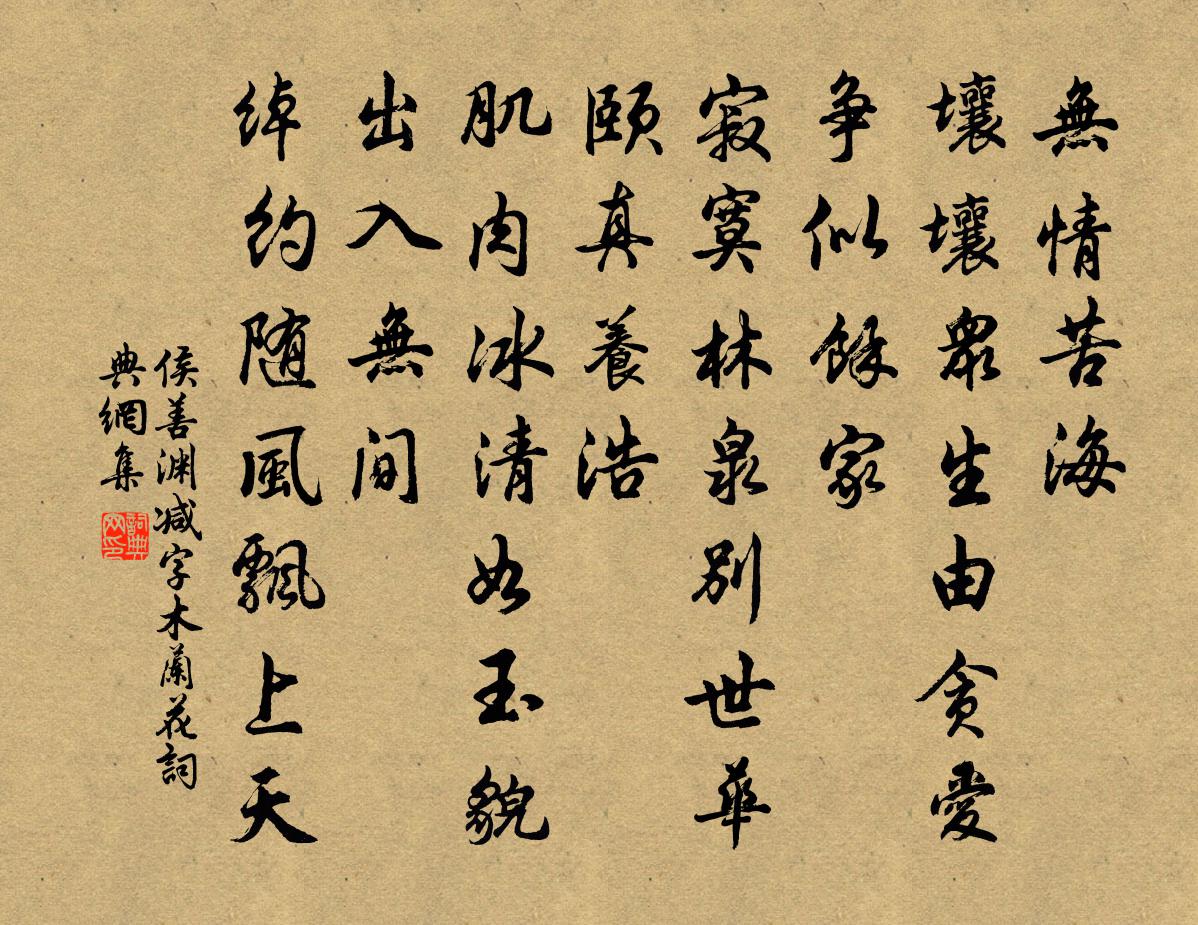 無情苦海
壤壤眾生由貪愛
争似餘家
寂寞林泉別世華
頤真養浩
肌肉冰清如玉貌
出入無間
綽約随風飄上天
侯善渊减字木蘭花詞
典網集
詞典網印